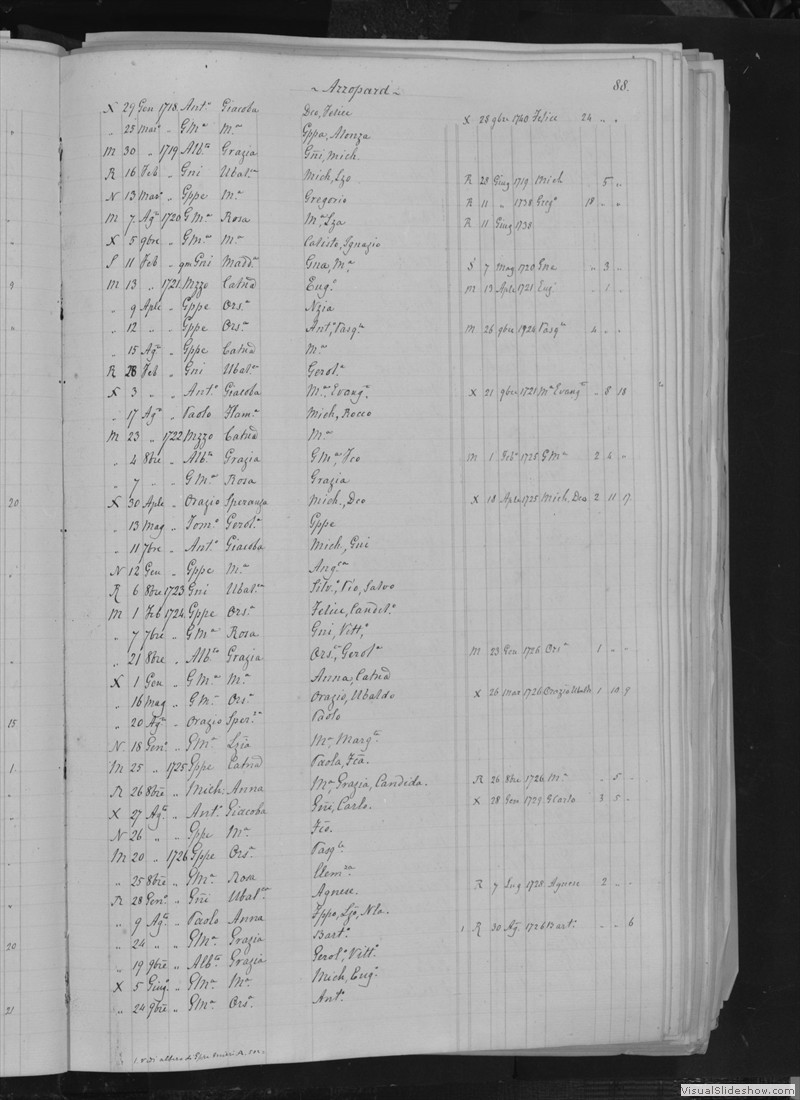 ~ Azzopard ~ 88.
X 29 Gen 1718 Ant.º Giacoba Dco, Felice X 28 gbre 1740 Felice 24 " "
" 25 Mar.º " GM.ª M.ª Gppa, Alonza
M 30 " 1719 Alb.to Grazia Gñi, Mich.
R 16 Feb " Gni Ubal.ca Mich, Lzo R 28 Giug 1719 Mich " 5 "
N 13 Mar.º " Gppe M.ª Gregorio R 11 " 1738 Greg.º 18 " "
M 7 Ag.º 1720 GM.ª Rosa M.ª, Lza R 11 Giug 1738
X 5 9bre " GM.ª M.ª Calisto, Ignazio
S 11 Feb " qm Gni Madd.ª Gna, M.ª S 7 Mag 1720 Gna " 3 "
M 13 " 1721 Mzzo Catnā Eug.º M 13 Aple 1721 Eug.º " 1 "
" 9 Aple " Gppe Ors.ª Nzia
" 12 " " Gppe Ors.ª Ant.º, Pasq.le M 26 gbre 1726 Pasq.le 4 " "
" 15 Ag.º " Gppe Catnā M.ª
R 28 Feb " Gni Ubal.ca Gerol.ª
X 3 " " Ant.º Giacoba M.ª, Evang.ta X 21 gbre 1721 M.ª Evang.ta " 8 18
" 17 Ag.º " Paolo Flam.ª Mich, Rocco
M 23 " 1722 Mzzo Catnā M.ª
" 4 8bre " Alb.to Grazia GM.ª, Fco M 1 Feb.º 1725 GM.ª 2 4 "
" 7 " " GM.ª Rosa Grazia
X 30 Aple " Orazio Speranza Mich., Dco X 18 Aple 1725 Mich, Dco 2 11 17
" 13 Mag " Tom.º Gerol.ª Gppe
" 11 7bre " Ant.º Giacoba Mich, Gni
N 12 Gen " Gppe M.ª Ang.ca
R 6 8bre 1723 Gni Ubal.ca Silv.º, Pio, Salvo
M 1 Feb 1724 Gppe Ors.ª Felice, Candel.º
" 7 7bre " GM.ª Rosa Gni, Vitt.º
" 21 8bre " Alb.to Grazia Ors.ª, Gerol.ª M 23 Gen 1726 Ors.ª 1 " "
X 1 Gen " GM.ª M.ª Anna, Catnā
" 16 Mag " GM.ª Ors.ª Orazio, Ubaldo X 26 Mar 1726 Orazio Ubaldo 1 10 9
" 20 Ag.º " Orazio Sper.za Paolo
N 18 Gen.º " GM.ª Lzia M.ª, Marg.ta
M 25 " 1725 Gppe Catnā Paola, Fca.
R 26 8bre " Mich. Anna M.ª, Grazia, Candida. R 26 8bre 1726 M.ª " 5 "
X 27 Ag.º " Ant.º Giacoba Gñi, Carlo. X 28 Gen 1729 Carlo 3 5 "
N 26 " " Gppe M.ª Fco.
M 20 " 1726 Gppe Ors.ª Pasq.le
" 25 8bre " GM.ª Rosa Clem.za
R 28 Gen.º " Gñi Ubal.ca Agnese. R 7 Lug 1728 Agnese 2 " "
" 9 Ag.º " Paolo Anna Fppo, Lzo, Nla.
" 24 " " GM.ª Grazia Bart.º 1 R 30 Ag.º 1726 Bart.º " " 6
" 19 9bre " Alb.to Grazia Gerol.º, Vitt.º
X 5 Giug.º " GM.ª M.ª Mich, Eug.º
" 24 9bre " GM.ª Ors.ª Ant.º
9
20
15
1.
20
21
VisualSlideshow.com